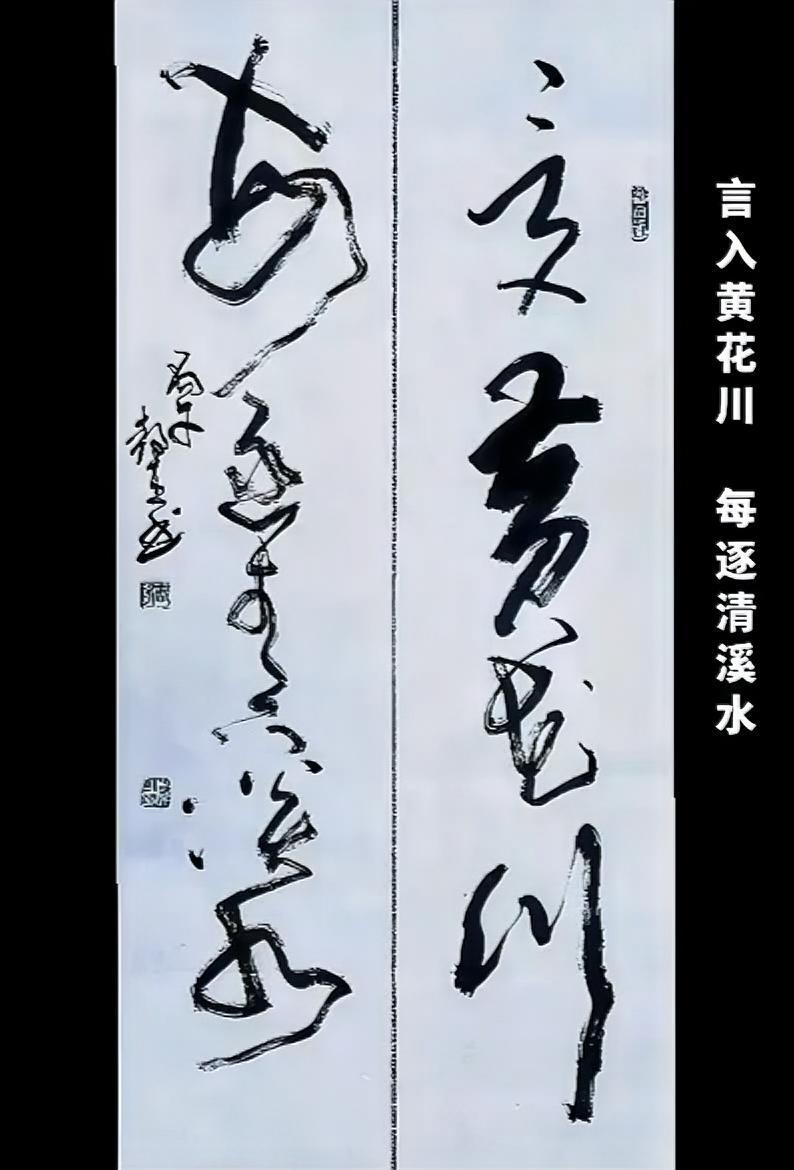 言入黄花川
每逐清溪水
言入黄花川 每逐清溪水